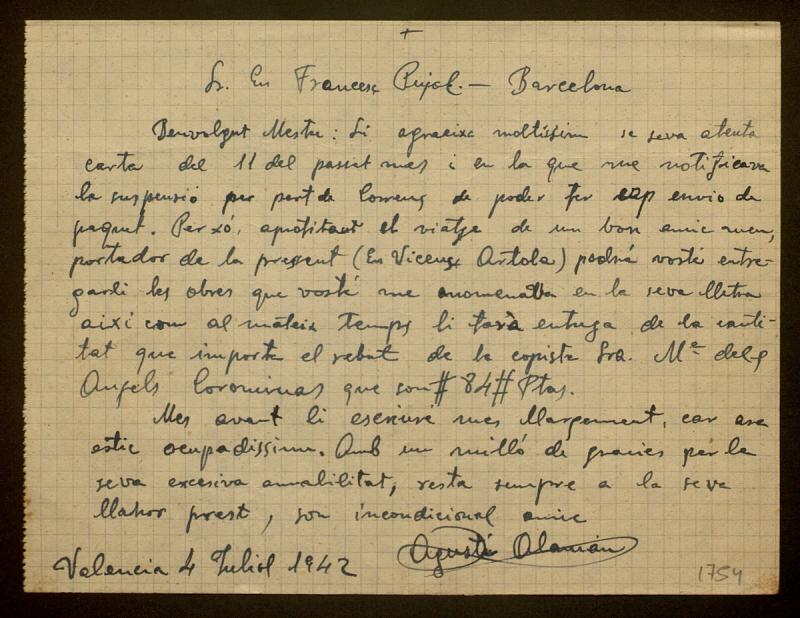 +
Sr. En Francesc Pujol. — Barcelona
Benvolgut Mestre: Li agraeixc moltíssim la seva atenta
carta del 11 del passat mes i en la que me notificava
la suspensió per part de Correus de poder fer cap envio de
paquet. Per xó, aprofitant el viatge de un bon amic meu,
portador de la present (En Vicenç Artola) podrá vosté entre-
garli les obres que vosté me anomenava en la seva lletra
així com al mateix temps li fará entrega de la canti-
tat que importa el rebut de la copista Sra. Mª dels
Angels Corominas que son # 84 # Ptas.
Mes avant li escriuré mes llargament, car ara
estic ocupadissim. Amb un milló de gracies per la
seva excesiva amabilitat, resta sempre a la seva
llahor prest, son incondicional amic
Agustí Alamán
Valencia 4 Juliol 1942
1754